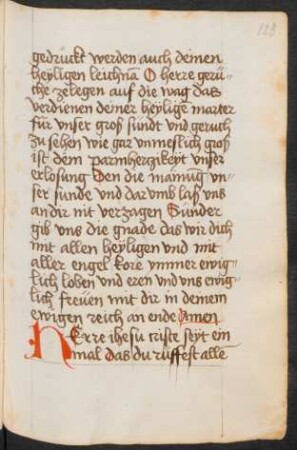 128
gedruckt werden auch deinen
heyligen leichnā O herre geru-
che zelegen auf die wag das
verdienen deiner heylige marter
für vnser groß sundt vnd geruch
zu sehen wie gar vnmeslich groß
ist dem parmherzikeyt vnser
erlosung Den die mainug vn-
ser sunde vnd dar vmb laß vns
an dir nit verzagen Sunder
gib vns die gnade das wir dich
mit allen heyligen vnd mit
aller engel kore ymmer ewig-
lich loben vnd eren vnd vns ewig-
lich freuen mit dir in deinem
ewigen reich an ende Amen
Herre ihesu criste seyt ein
mal das du ruffest alle